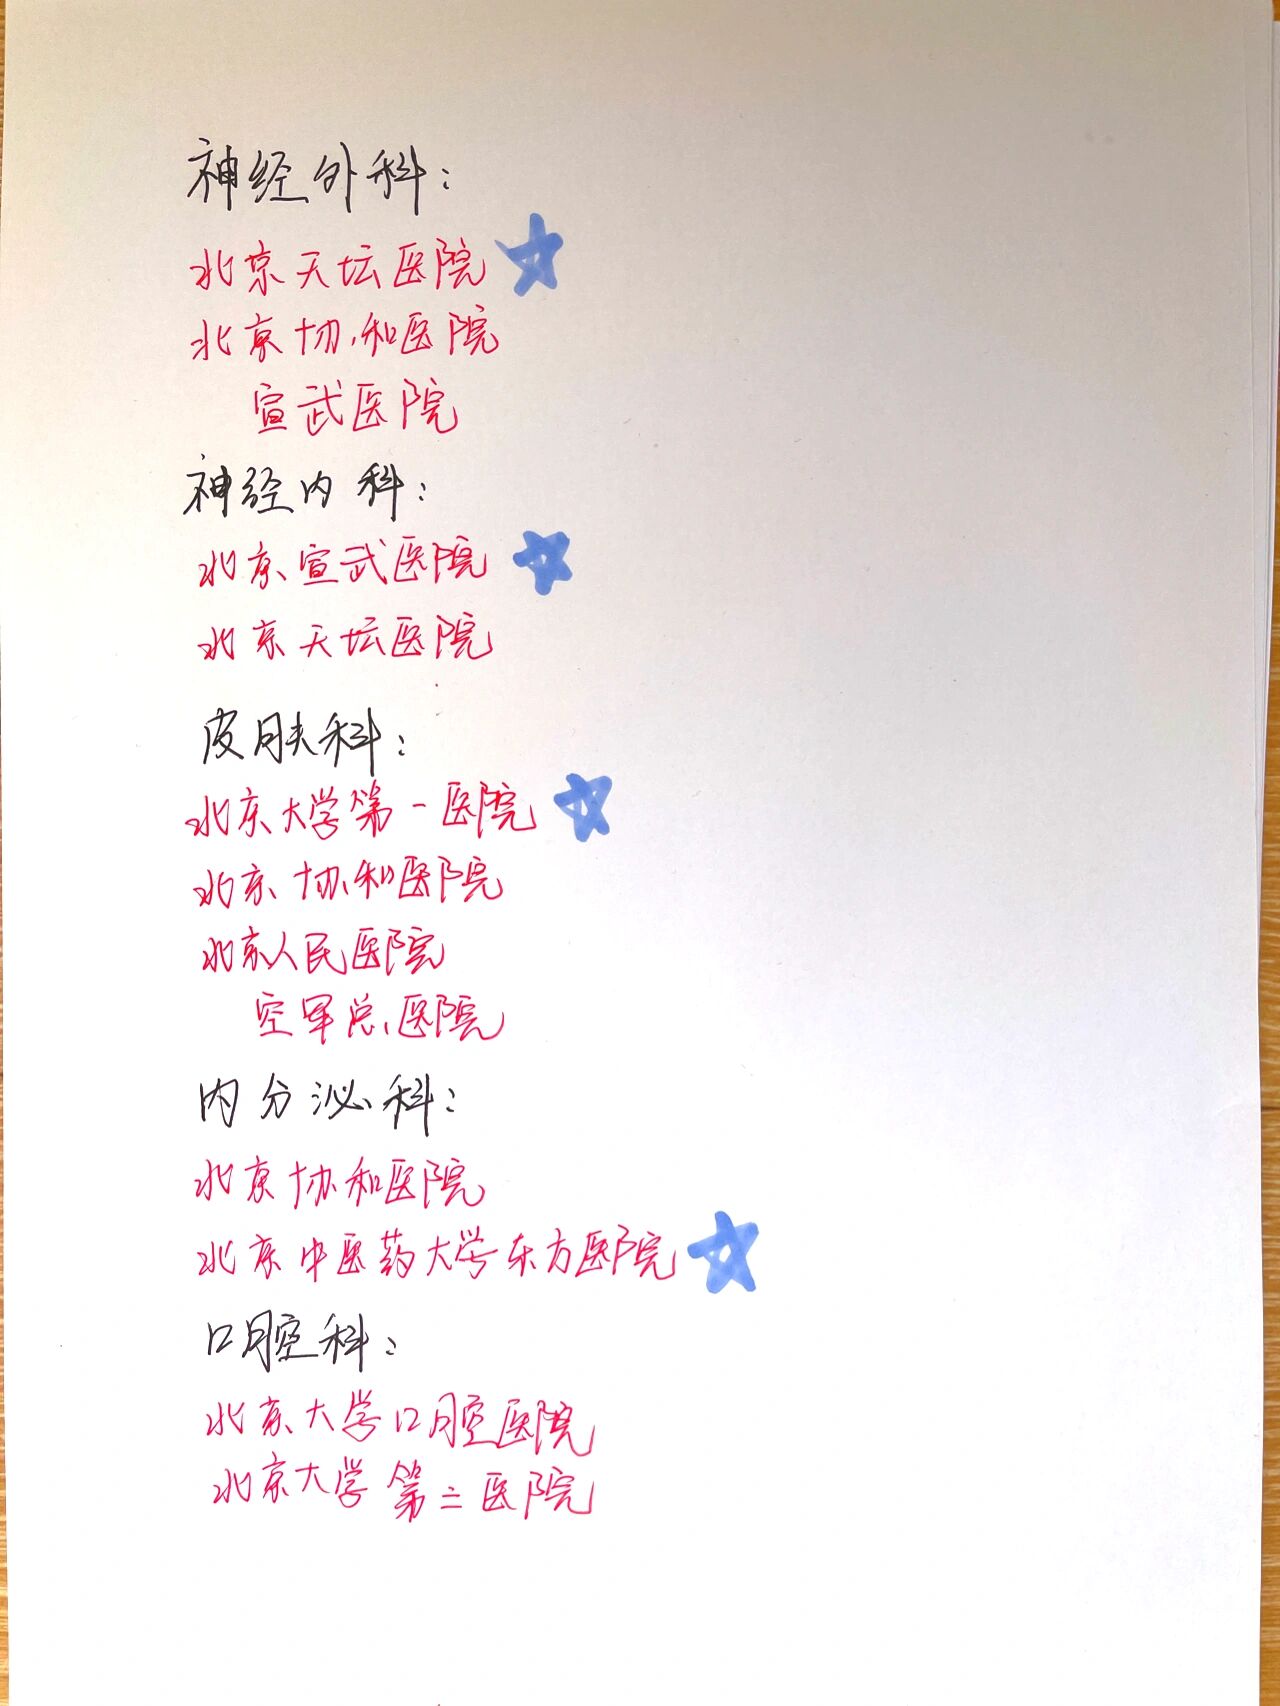 神经外科：
北京天坛医院
北京协和医院
宣武医院
神经内科：
北京宣武医院
北京天坛医院
皮肤科：
北京大学第一医院
北京协和医院
北京人民医院
空军总医院
内分泌科：
北京协和医院
北京中医药大学东方医院
口腔科：
北京大学口腔医院
北京大学第三医院